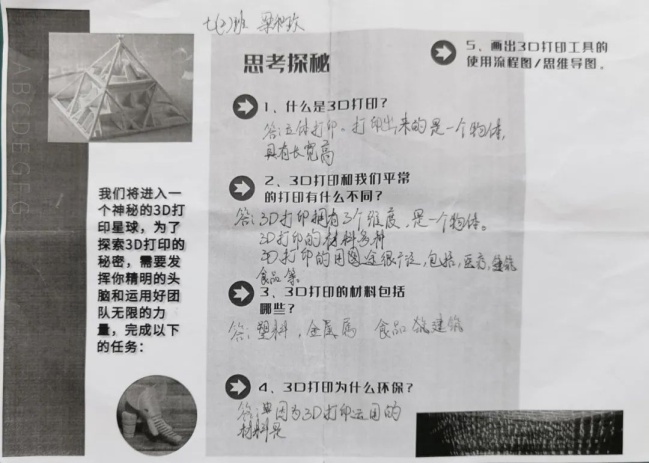 七(2)班
ABCDEGFG
思考探秘
5、画出3D打印工具的
使用流程图/思维导图。
1、什么是3D打印？
答:立体打印。打印出来的是一个物体,
具有长宽高
我们将进入一
个神秘的3D打
印星球，为了
探索3D打印的
秘密，需要发
挥你精明的头
脑和运用好团
队无限的力
量，完成以下
的任务：
2、3D打印和我们平常
的打印有什么不同？
答:3D打印拥有3个维度,是一个物体。
3D打印的材料
3D打印的用途很广泛,包括,医疗,建筑
食品等。
3、3D打印的材料包括
哪些？
答:塑料,金属 食品 建筑
4、3D打印为什么环保？
答:因为3D打印运用的
材料是